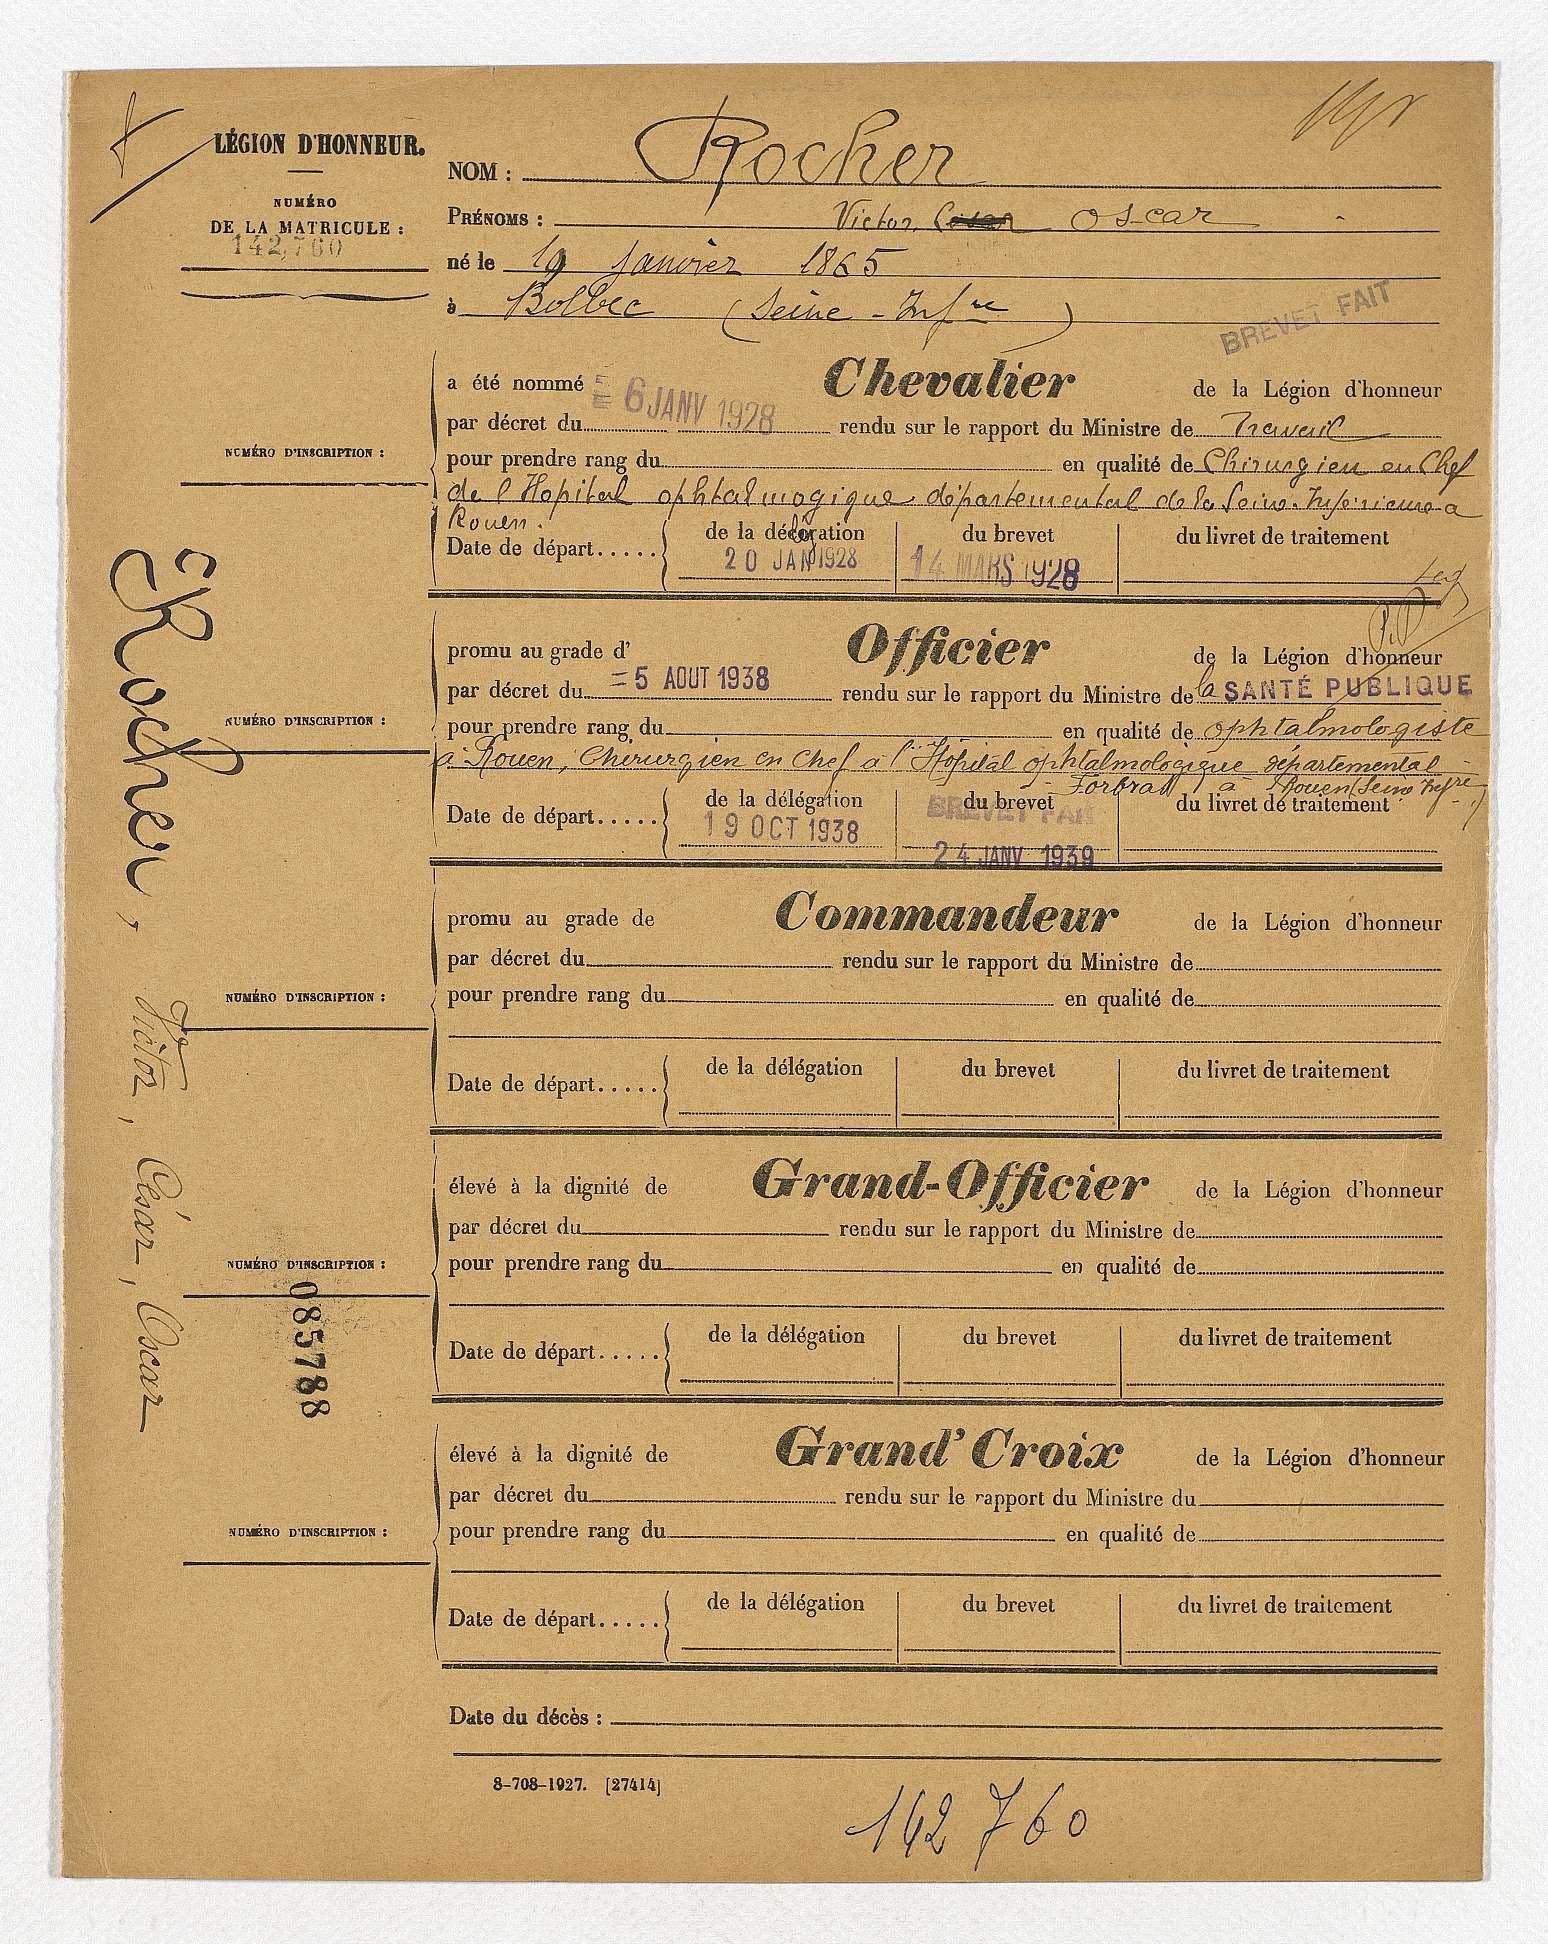 LÉGION D'HONNEUR.
NUMÉRO
DE LA MATRICULE :
142,760
NOM : Rocher
PRÉNOMS : Victor, Oscar
né le 19 janvier 1865
à Bolbec (Seine-Infre)
BREVET FAIT
a été nommé Chevalier de la Légion d'honneur
par décret du 6 JANV 1928 rendu sur le rapport du Ministre de Travail
NUMÉRO D'INSCRIPTION :
pour prendre rang du en qualité de Chirurgien en Chef
de l'Hopital ophtalmogique départemental de la Seine-Inférieure a
Rouen.
Date de départ..... de la délégation du brevet du livret de traitement
20 JAN 1928 14 MARS 1928
promu au grade d' Officier de la Légion d'honneur
par décret du =5 AOUT 1938 rendu sur le rapport du Ministre de la SANTÉ PUBLIQUE
NUMÉRO D'INSCRIPTION :
pour prendre rang du en qualité de ophtalmologiste
à Rouen, Chirurgien en Chef à l'Hôpital ophtalmologique départemental
à Rouen (Seine Infre)
Date de départ..... de la délégation du brevet du livret de traitement
BREVET FAIT
19 OCT 1938 24 JANV 1939
promu au grade de Commandeur de la Légion d'honneur
par décret du rendu sur le rapport du Ministre de
NUMÉRO D'INSCRIPTION :
pour prendre rang du en qualité de
Date de départ..... de la délégation du brevet du livret de traitement
élevé à la dignité de Grand-Officier de la Légion d'honneur
par décret du rendu sur le rapport du Ministre de
NUMÉRO D'INSCRIPTION :
pour prendre rang du en qualité de
Date de départ..... de la délégation du brevet du livret de traitement
085788
élevé à la dignité de Grand' Croix de la Légion d'honneur
par décret du rendu sur le rapport du Ministre du
NUMÉRO D'INSCRIPTION :
pour prendre rang du en qualité de
Date de départ..... de la délégation du brevet du livret de traitement
Date du décès :
8-708-1927. [27414]
142 760
Rocher, Victor, César, Oscar